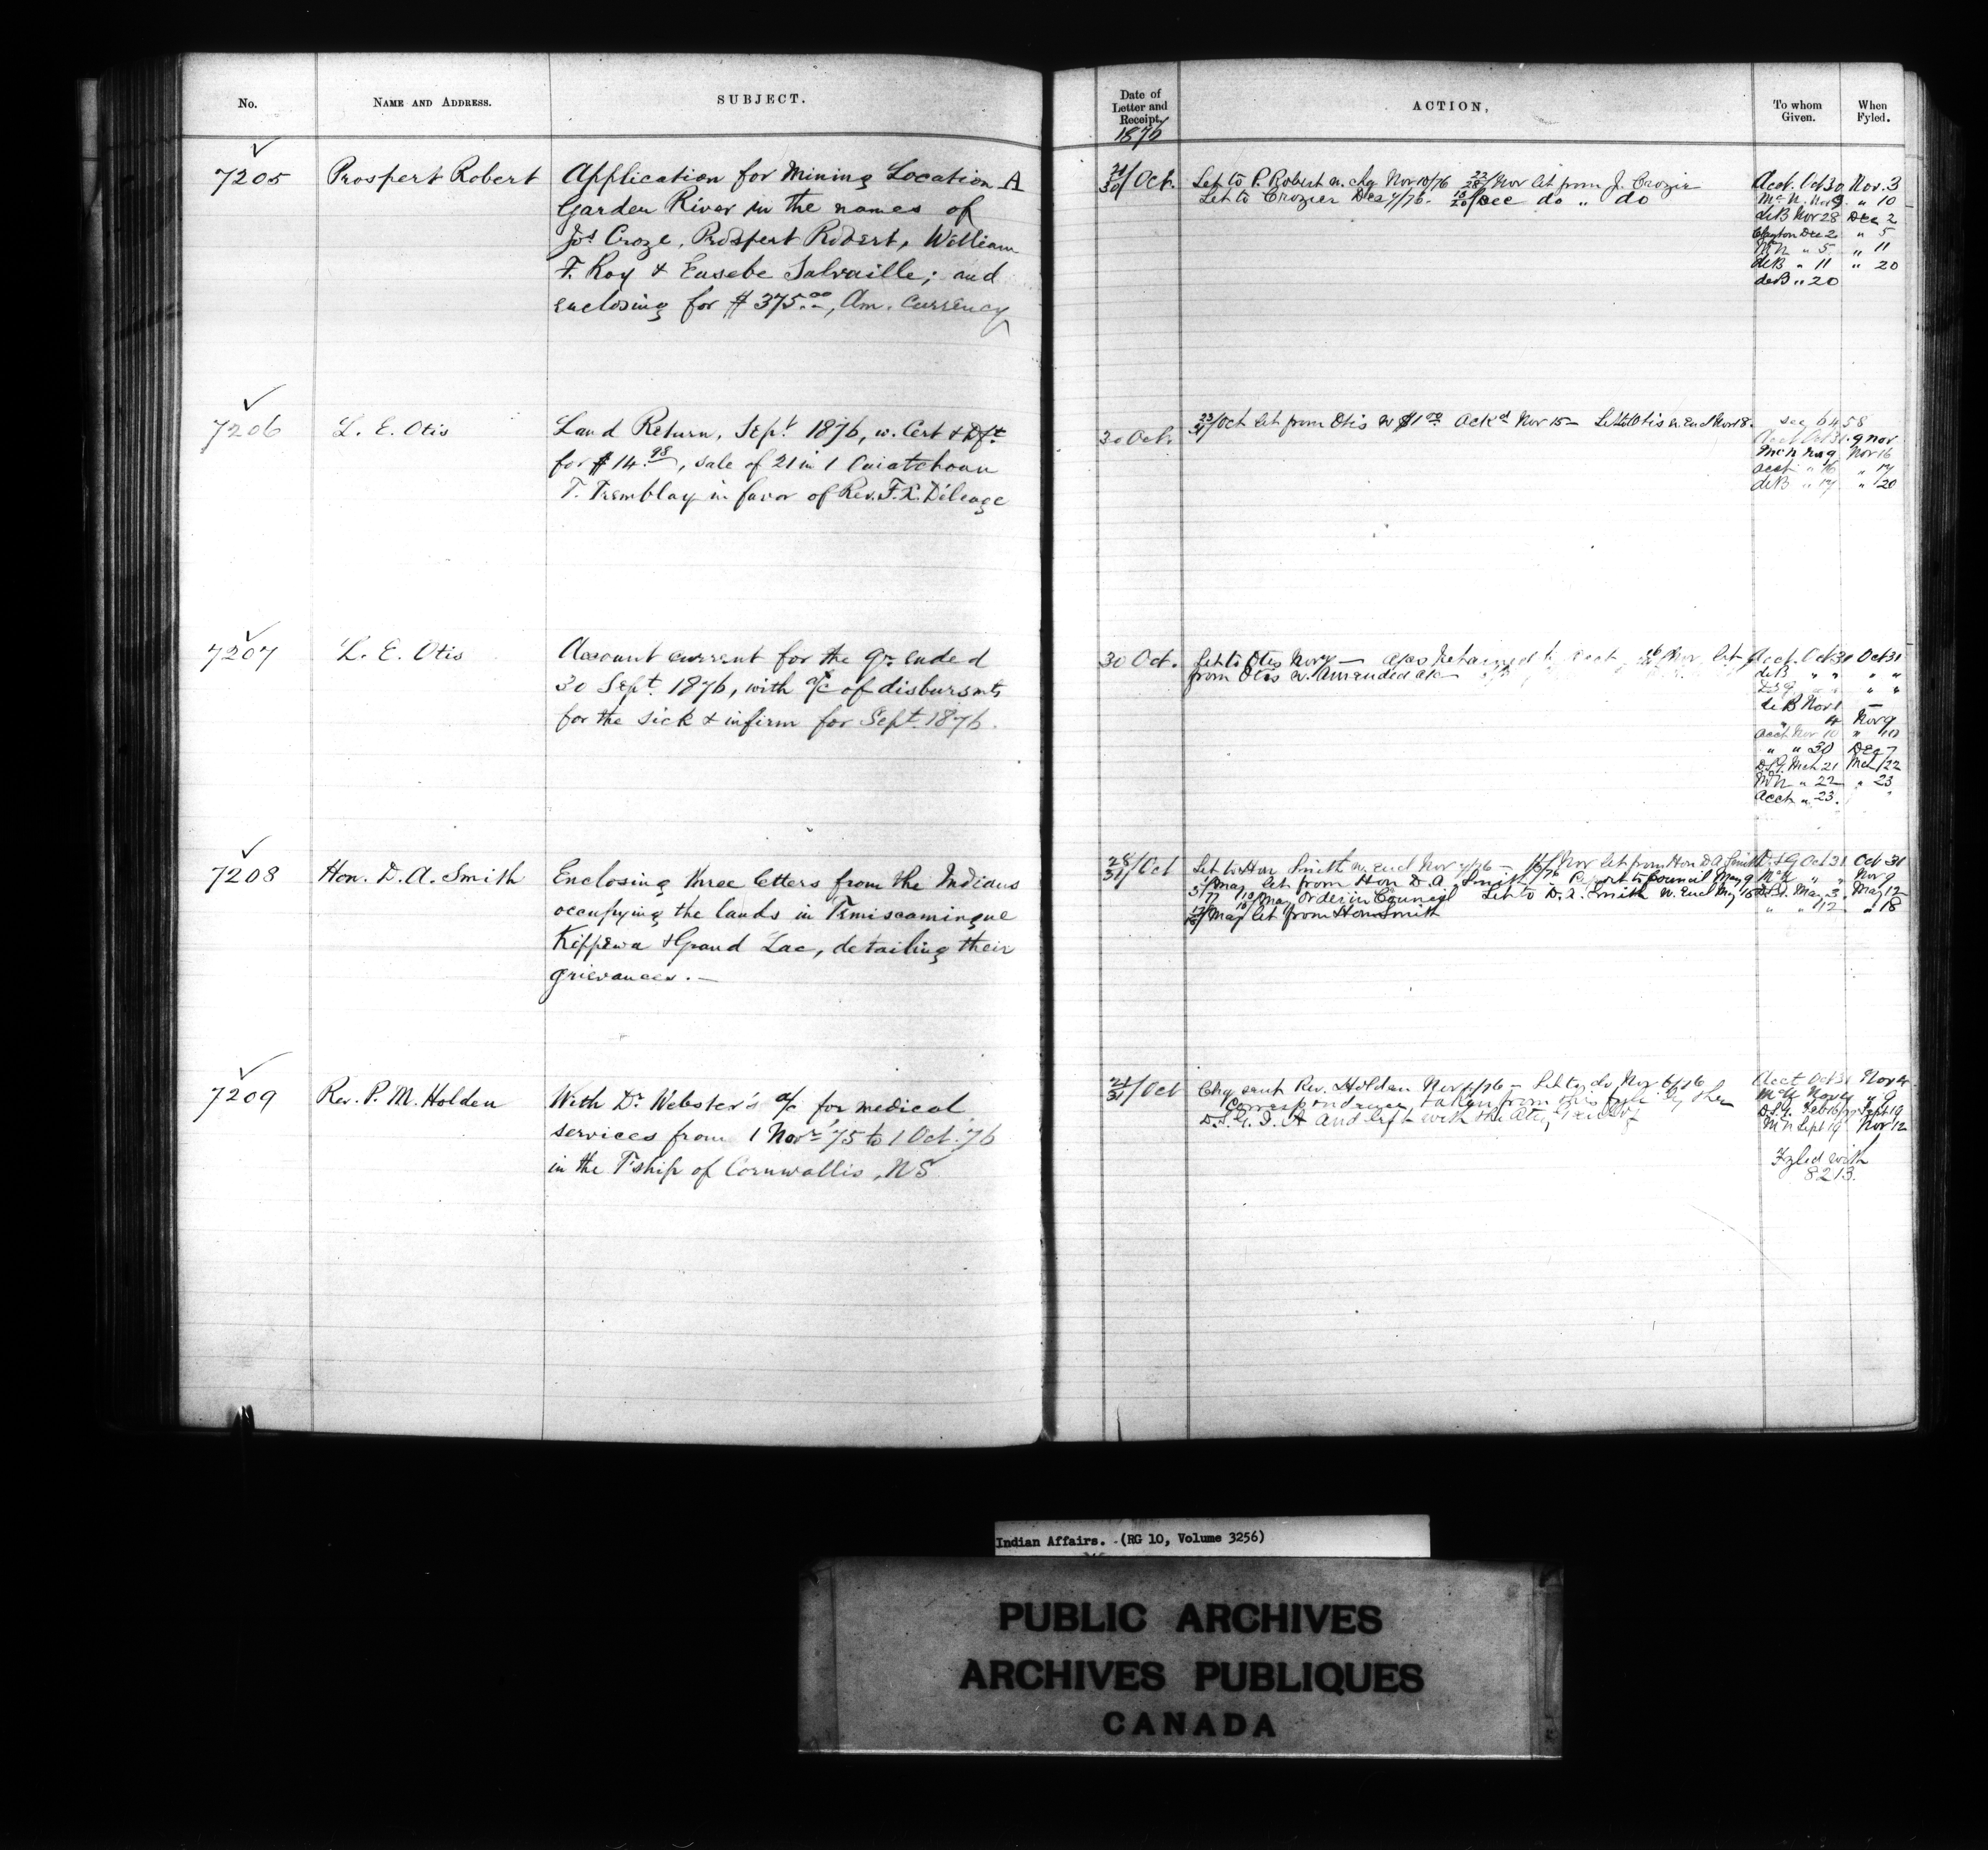 No.
NAME AND ADDRESS.
SUBJECT.
Date of
Letter and
Receipt.
1876
ACTION.
To whom
Given.
When
Fyled.
7205
Prospert Robert
Application for Mining Location A
Garden River in the names of
Jos Croze, Prospert Robert, William
F. Roy & Eusebe Salvaille; and
enclosing for $375.00, Am. currency
30/Oct.
Let to P. Robert w. chq Nov 10/76 22/28/Nov let from J. Crozier
Let to Crozier Dec 7/76. /Dec do " do
Acct. Oct 30 Nov. 3
McN. Nov 9 " 10
deB Nov 28 Dec 2
Dec 2 " 5
" 5 " 11
deB " 11 " 20
deB " 20
7206
L. E. Otis
Land Return, Sept 1876, w. Cert & Dft
for $14.98, sale of 21 in 1
T. Tremblay in favor of Rev. F. X. Déleage
30 Oct.
23/31/Oct Let from Otis w $1.00 Ackd Nov 15 — Let to Otis w Encl Nov 18.
see 6458
Acct Oct 31. 9 Nov
McN Nov 9 Nov 16
acct " 16 " 17
deB " 17 " 20
7207
L. E. Otis
Account current for the qr. ended
30 Sept. 1876, with a/c of disbursmts
for the sick & infirm for Sept. 1876.
30 Oct.
Let to Otis Nov — Nov. let
from Otis w. Amended a/c
Acct. Oct 31 Oct 31
deB " " " "
" "
deB Nov 1 —
" 4 Nov 9
acct Nov 10 " 10
" " 30 Dec 7
D.S.G. Mch 21 Mch 22
McN " 22 " 23
Acct " 23.
7208
Hon. D. A. Smith
Enclosing three letters from the Indians
occupying the lands in Temiscamingue
Kippewa & Grand Lac, detailing their
grievances. —
28/31/Oct
Let to Hon Smith w. Encl Nov /76 — /Nov let from Hon D A Smith
/May Let from Hon D. A. Smith /76 Report to Council May 9
/May Order in Council Let to D. A. Smith w. Encl My 16
/May let from Hon Smith
D.S.G Oct 31 Oct 31
McN " " Nov 9
D.S.G. May 3. May 12
" " 12 " 18
7209
Rev. P. M. Holden
With Dr Webster's a/c for medical
services from 1 Novr '75 to 1 Oct. '76
in the T'ship of Cornwallis, NS
/31/Oct
Chq sent Rev. Holden Nov /76 — Let to do Nov 6/76
Correspondence taken from this fyle by the
D.S.G. I. A and left with the
Acct Oct 31 Nov 4
McN Nov 4 " 9
D.S.G. Feb 16/77 Sept 19
McN Sept 19 Nov 12
Fyled with
8213.
Indian Affairs. (RG 10, Volume 3256)
PUBLIC ARCHIVES
ARCHIVES PUBLIQUES
CANADA